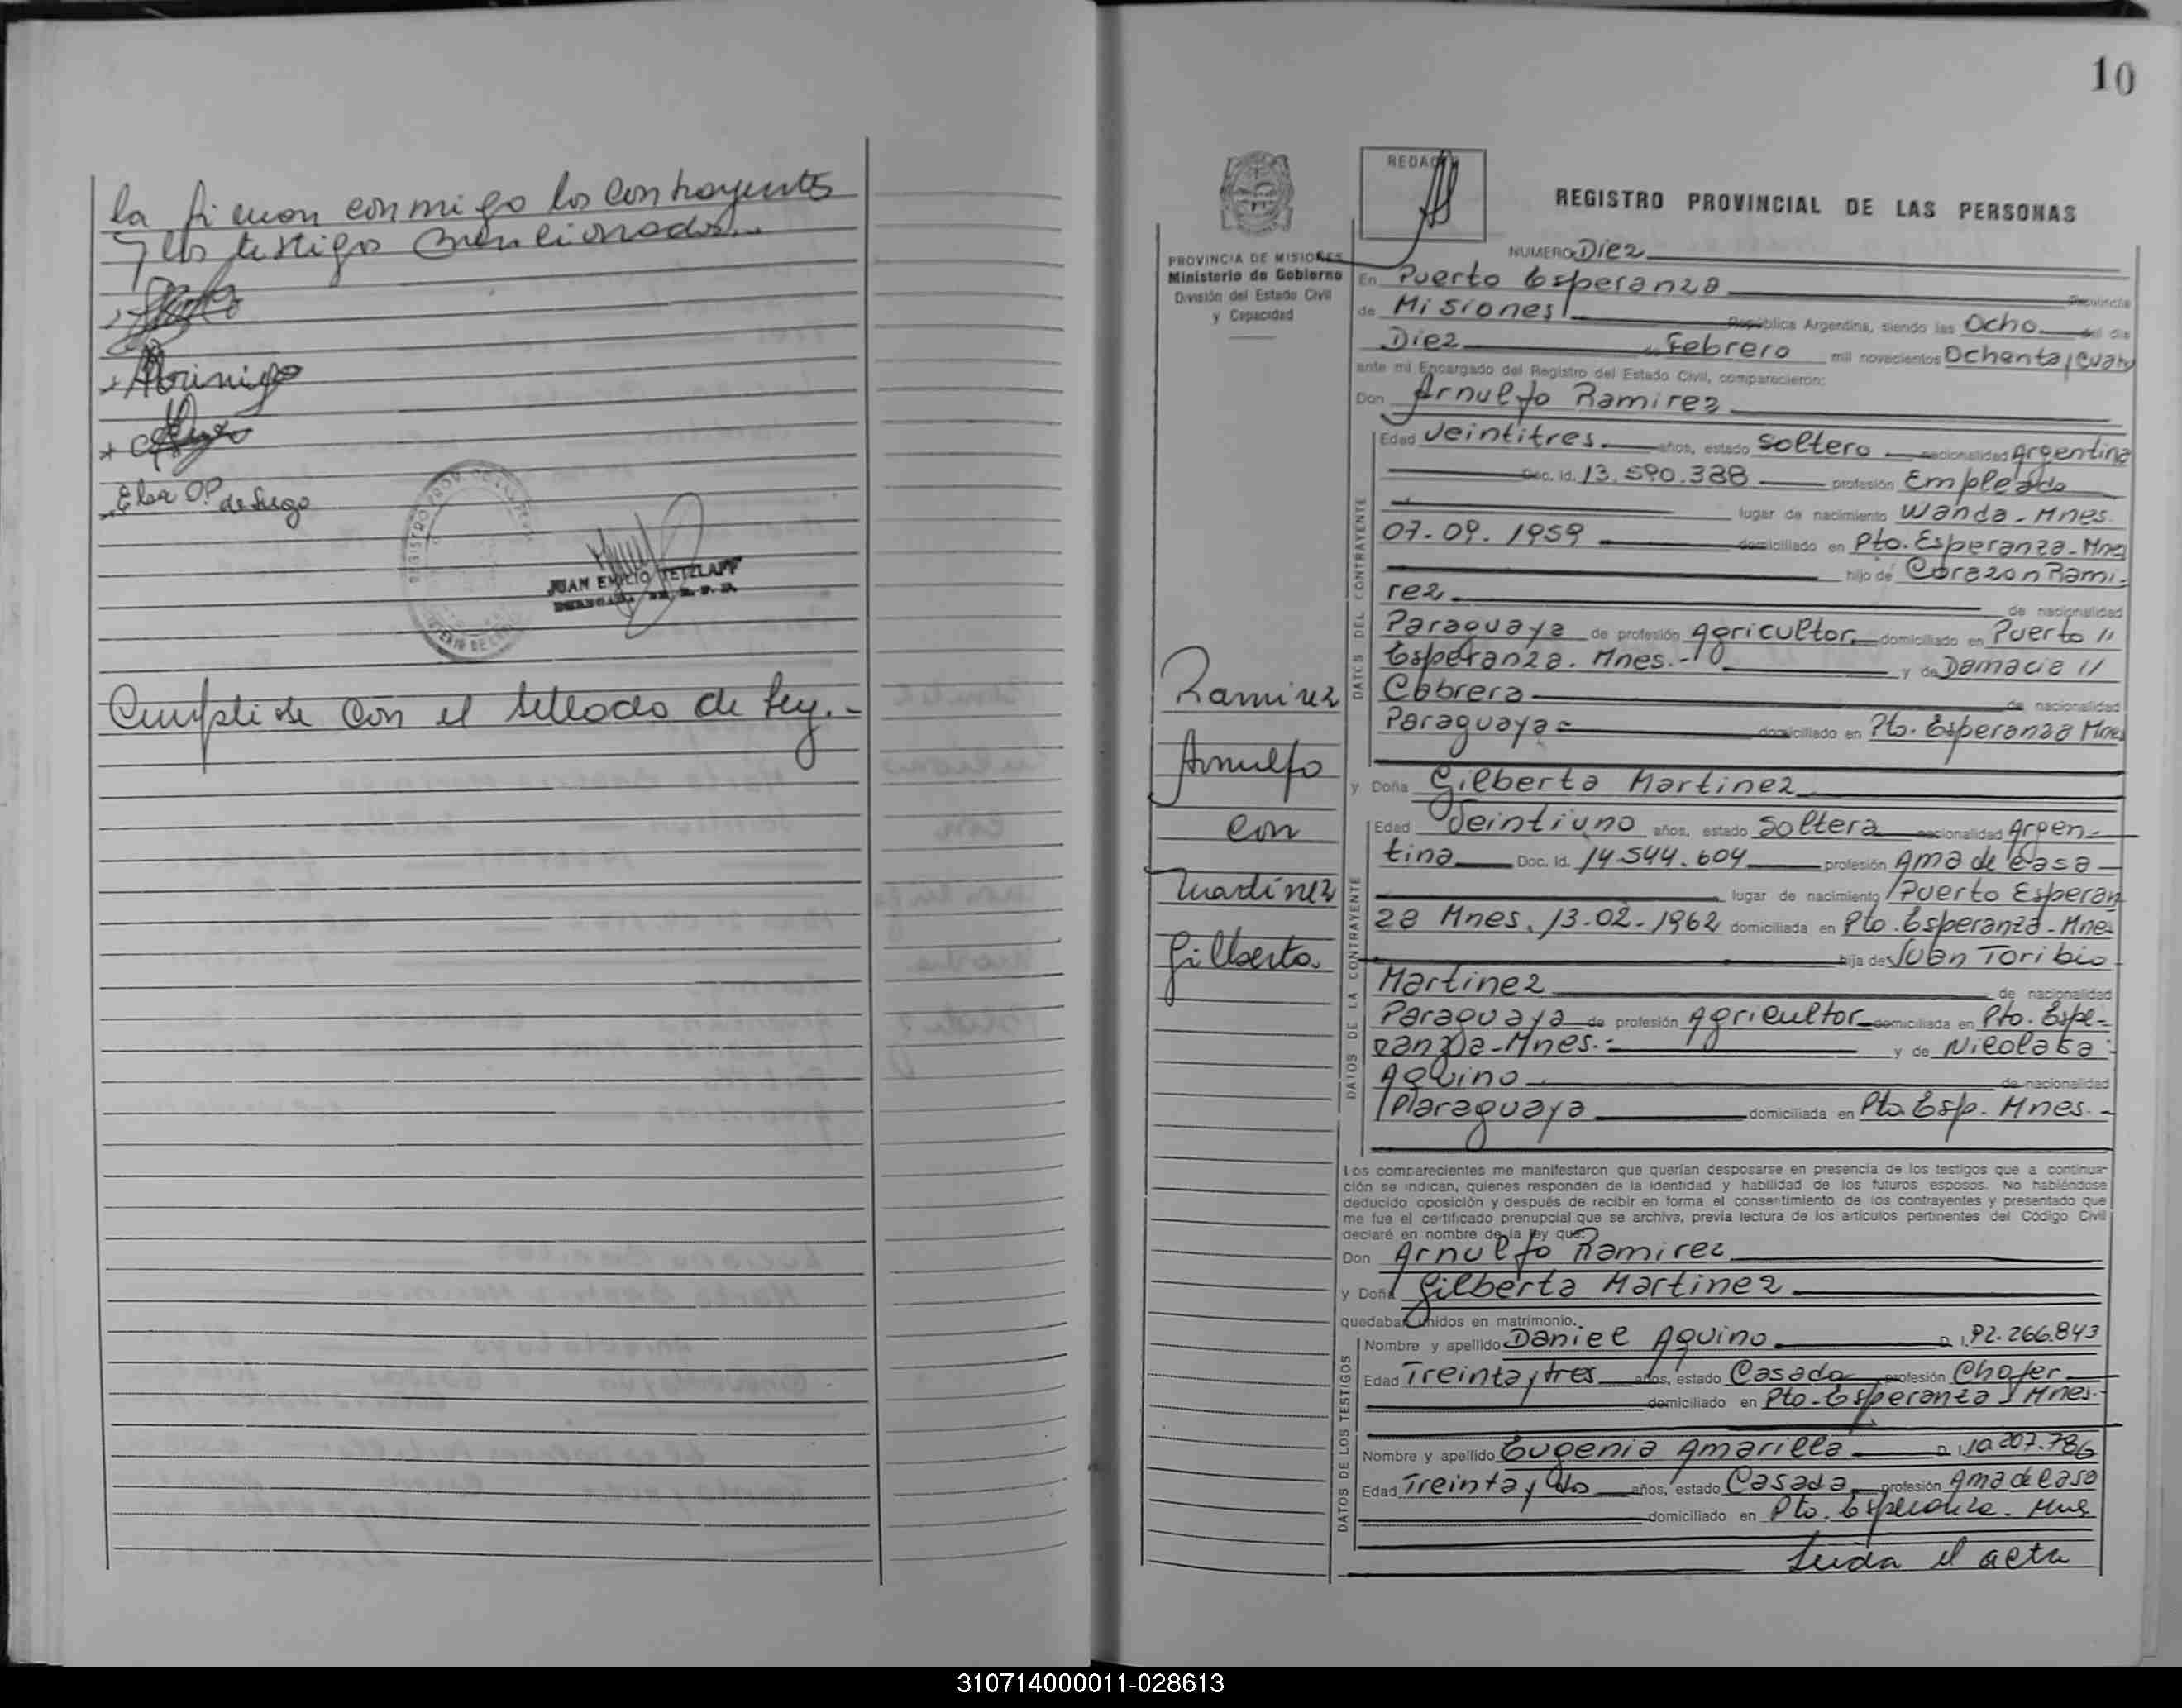 la firman conmigo los contrayentes
y los testigos mencionados.-
Elsa O.P. de Lugo
JUAN EMILIO TETZLAFF
Cumplida con el sellado de Ley.-
10
REDAC
REGISTRO PROVINCIAL DE LAS PERSONAS
PROVINCIA DE MISIONES
Ministerio de Gobierno
División del Estado Civil
y Capacidad
NUMERO Diez
En Puerto Esperanza Provincia
de Misiones República Argentina, siendo las Ocho del día
Diez de Febrero mil novecientos Ochenta y Cuatro
ante mí Encargado del Registro del Estado Civil, comparecieron:
Don Arnulfo Ramirez
DATOS DEL CONTRAYENTE
Edad Veintitres años, estado Soltero nacionalidad Argentina
Doc. Id. 13.590.388 profesión Empleado
lugar de nacimiento Wanda - Mnes.
07-09-1959 domiciliado en Pto. Esperanza - Mnes
hijo de Corazon Rami-
rez de nacionalidad
Paraguaya de profesión Agricultor domiciliado en Puerto //
Esperanza. Mnes.- y de Damacia //
Cabrera de nacionalidad
Paraguaya domiciliado en Pto. Esperanza Mnes
Ramirez
Arnulfo
con
Martinez
Gilberta.
y Doña Gilberta Martinez
DATOS DE LA CONTRAYENTE
Edad Veintiuno años, estado Soltera nacionalidad Argen-
tina Doc. Id. 14.544.604 profesión Ama de Casa
lugar de nacimiento Puerto Esperan
za Mnes. 13-02-1962 domiciliada en Pto. Esperanza - Mnes
hija de Juan Toribio
Martinez de nacionalidad
Paraguaya de profesión Agricultor domiciliada en Pto. Espe-
ranza - Mnes.- y de Nicolasa
Aquino de nacionalidad
Paraguaya domiciliada en Pto. Esp. Mnes.-
Los comparecientes me manifestaron que querían desposarse en presencia de los testigos que a continua-
ción se indican, quienes responden de la identidad y habilidad de los futuros esposos. No habiéndose
deducido oposición y después de recibir en forma el consentimiento de los contrayentes y presentado que
me fue el certificado prenupcial que se archiva, previa lectura de los artículos pertinentes del Código Civil
declaré en nombre de la ley que:
Don Arnulfo Ramirez
y Doña Gilberta Martinez
quedaban unidos en matrimonio.
DATOS DE LOS TESTIGOS
Nombre y apellido Daniel Aquino D.I. 92.266.843
Edad Treinta y tres años, estado Casado profesión Chofer
domiciliado en Pto. Esperanza Mnes.-
Nombre y apellido Eugenia Amarilla D.I. 10.207.786
Edad Treinta y dos años, estado Casada profesión Ama de Casa
domiciliado en Pto. Esperanza. Mnes
Leida el acta
310714000011-028613